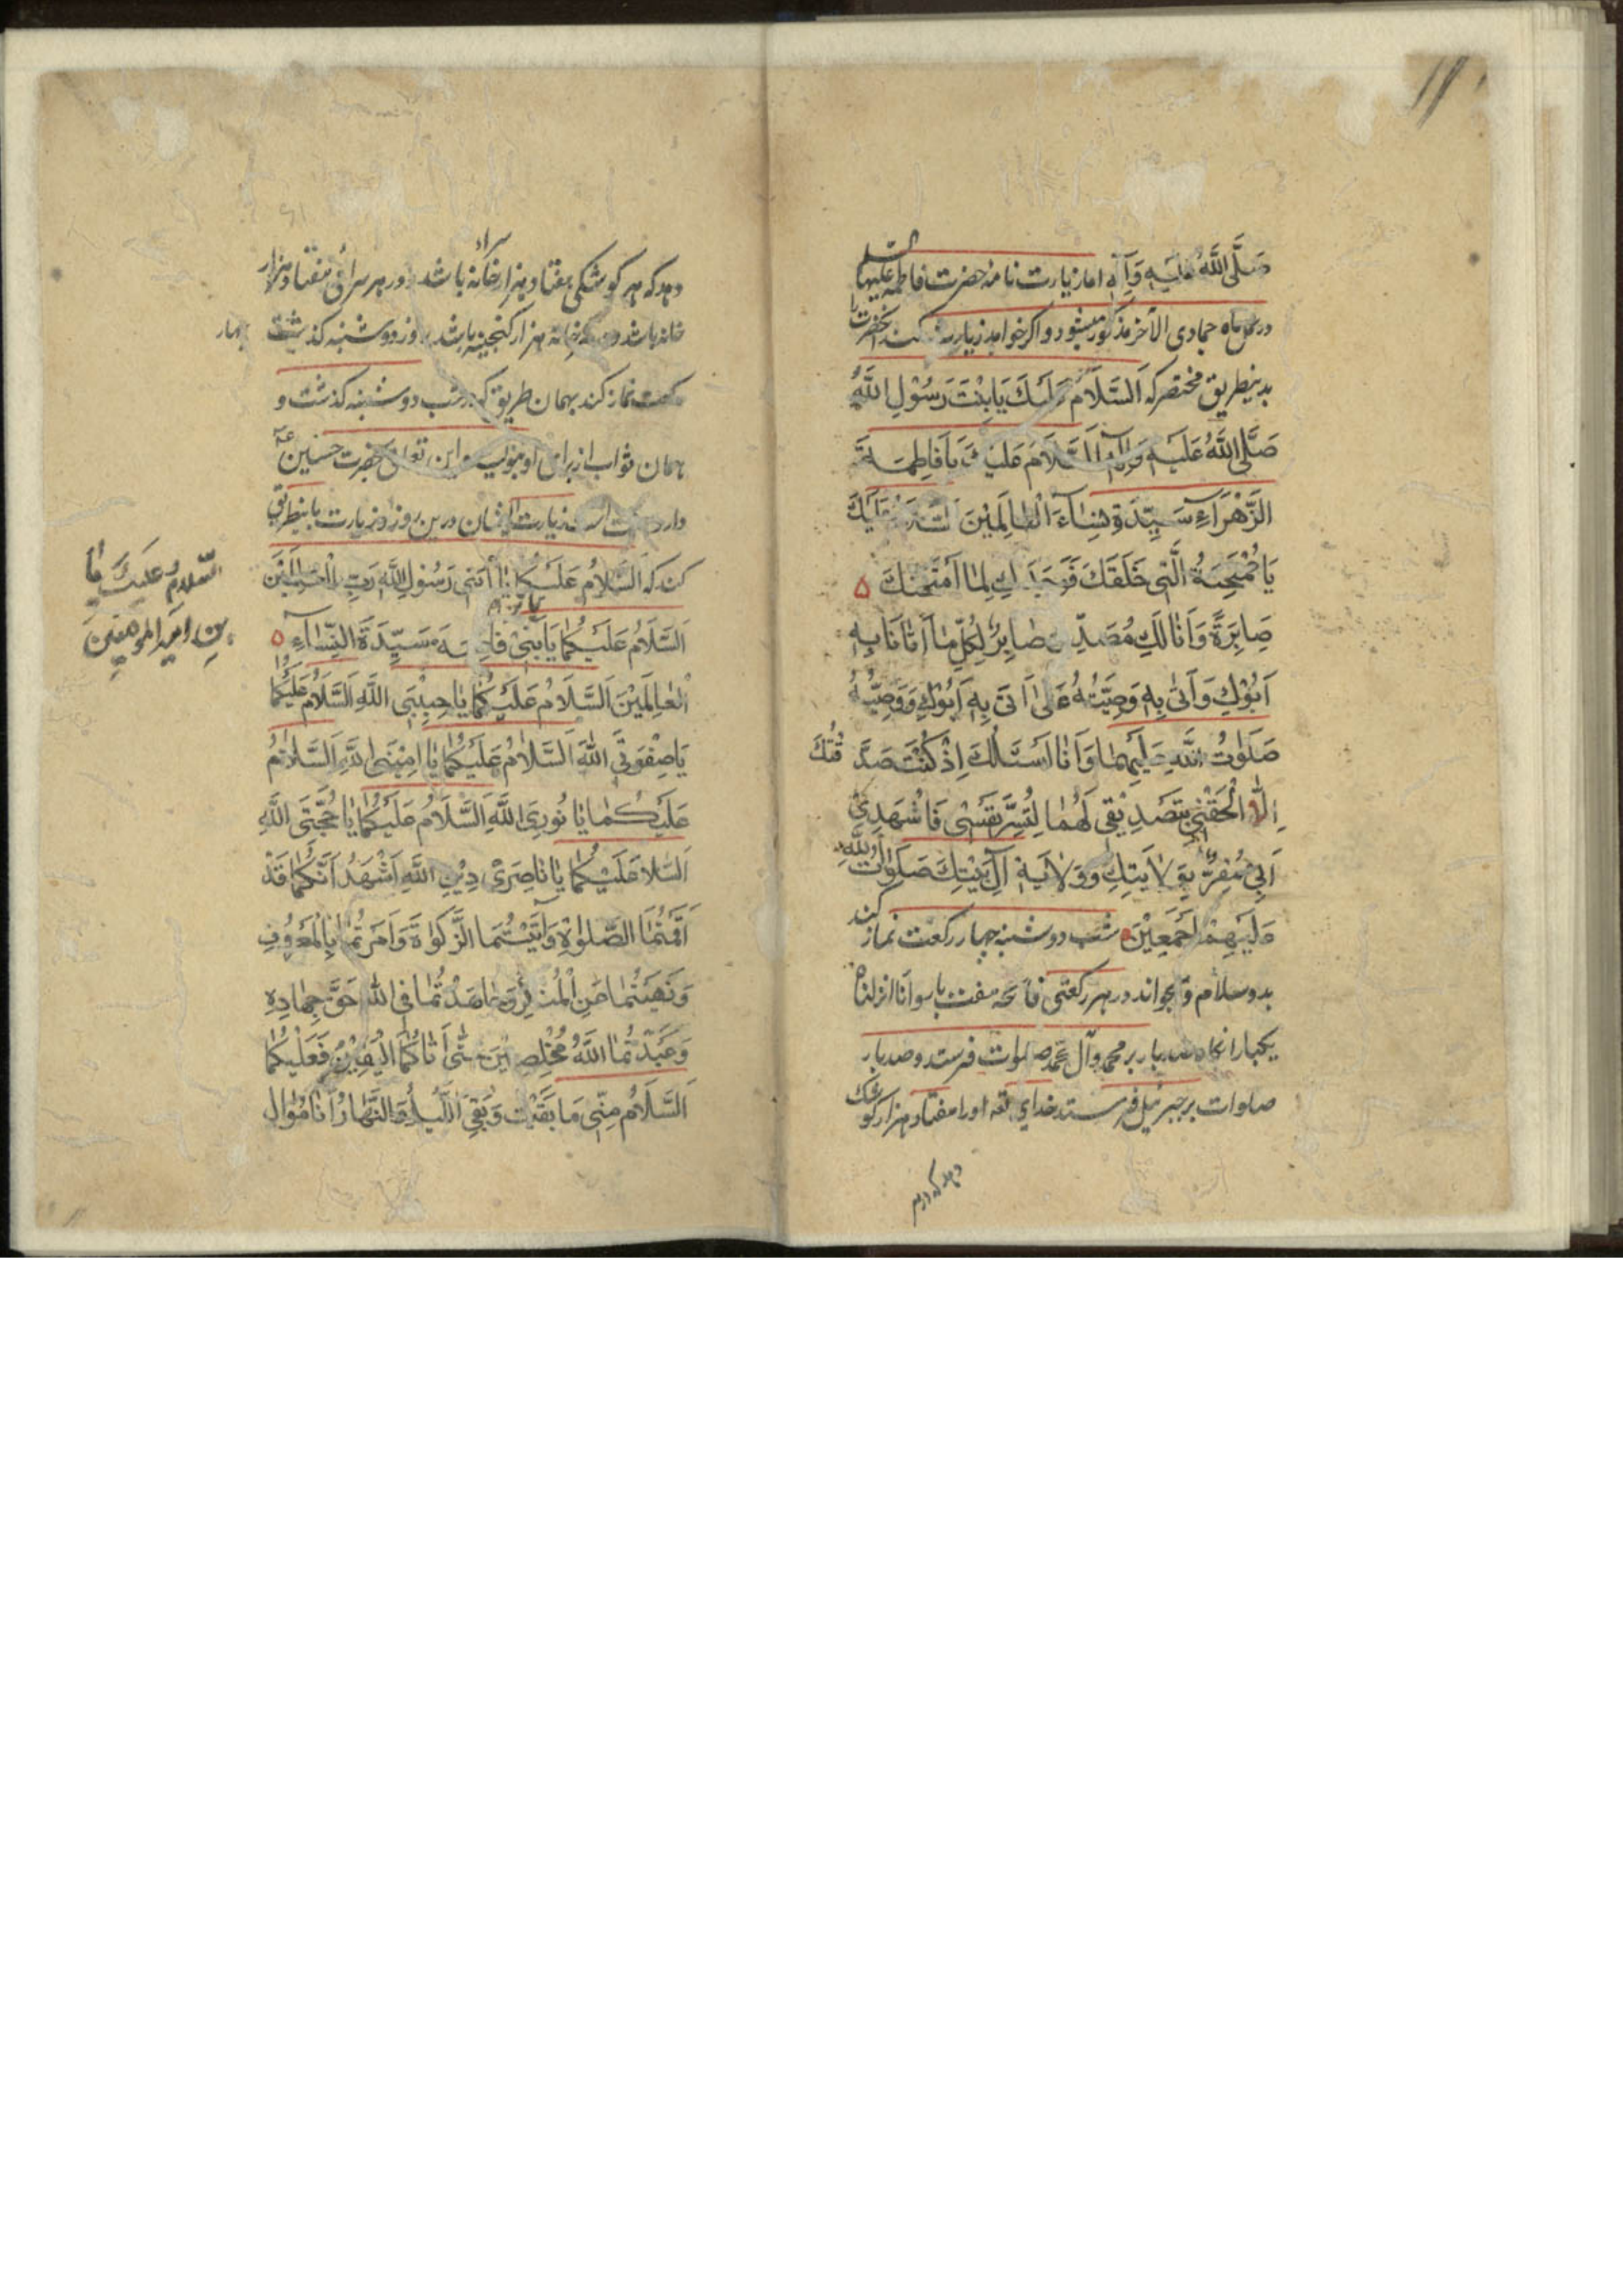 صَلَّى اللَّهُ عَلَيْهِ وَآلِهِ اما زیارت نامه حضرت فاطمه علیها السلم
در ماه جمادی الآخر مذکور میشود و اگر خواهد زیارت کند آنحضرت را
بدینطریق مختصر که اَلسَّلَامُ عَلَيْكَ يَا بِنْتَ رَسُوْلِ اللَّهِ
صَلَّى اللَّهُ عَلَيْهِ وَآلِهِ اَلسَّلَامُ عَلَيْكَ يَا فَاطِمَةَ
الزَّهْرَآءِ سَيِّدَةِ نِسَآءَ الْعَالَمِيْنَ اَلسَّلَامُ عَلَيْكَ
يَا مُمْتَحَنَةُ الَّتِي خَلَقَكَ فَوَجَدَكِ لِمَا اَمْتَحَنَكَ
صَابِرَةً وَاَنَا لَكِ مُصَدِّقٌ صَابِرٌ لِكُلِّ مَا اَتَانَا بِهِ
اَبُوْكِ وَاَتَى بِهِ وَصِيَّتُهُ عَلَى اَتَى بِهِ اَبُوْكِ وَوَصِيُّهُ
صَلَوٰتُ اللَّهِ عَلَيْهِمَا وَاَنَا اَسْئَلُكَ اِذْ كُنْتُ صَدَّقْتُكَ
اِلَّا اَلْحَقْتِنِي بِتَصْدِيْقِي لَهُمَا لِتُسَرَّ نَفْسِي فَاشْهَدِي
اَنِّي مُقِرٌّ بِوَلَايَتِكِ وَوَلَايَةِ آلِ بَيْتِكَ صَلَوٰاتُ اللَّهِ
عَلَيْهِمْ اَجْمَعِيْنَ شب دوشنبه چهار رکعت نماز کند
بدو سلام و بخواند در هر رکعتی فاتحه هفت بار و انا انزلناه
یکبار انکاه صد بار بر محمد و آل محمد صلوات فرستد و صد بار
صلوات بر جبرئیل فرستد خدای تعه او را هفتاد هزار کوشک
دهد که در هر
دهد که هر کوشکی هفتاد هزار سرا خانه باشد و در هر سرائی هفتاد هزار
خانه باشد و در هر خانه هزار کنجینه باشد روز دوشنبه کذشت چهار
رکعت نماز کند بهمان طریق که در شب دوشنبه کذشت و
همان ثواب از برای او بنویسند و این تعلق بحضرت حسنین عه
دارد زیارت ایشان درین روز و زیارت باینطریق
کند که اَلسَّلَامُ عَلَيْكُمَا يَا ابْنَىْ رَسُوْلِ اللَّهِ رَبِّ الْعَالَمِيْنَ
اَلسَّلَامُ عَلَيْكُمَا يَا بْنَىْ فَاطِمَةَ سَيِّدَةَ النِّسَآءِ
الْعَالَمِيْنَ اَلسَّلَامُ عَلَيْكُمَا يَا حَبِيْبَىِ اللَّهِ اَلسَّلَامُ عَلَيْكُمَا
يَا صِفْوَتَىِ اللَّهِ اَلسَّلَامُ عَلَيْكُمَا يَا اَمِيْنَىِ اللَّهِ اَلسَّلَامُ
عَلَيْكُمَا يَا نُورَىِ اللَّهِ اَلسَّلَامُ عَلَيْكُمَا يَا حُجَّتَىِ اللَّهِ
اَلسَّلَا عَلَيْكُمَا يَا نَاصِرَىْ دِيْنِ اللَّهِ اَشْهَدُ اَنَّكُمَا قَدْ
اَقَمْتُمَا الصَّلٰوةِ وَآتَيْتُمَا الزَّكَوٰةَ وَاَمَرْتُمَا بِالْمَعْرُوفِ
وَنَهَيْتُمَا عَنِ الْمُنْكَرِ وَجَاهَدْتُمَا فِي اللَّهِ حَقَّ جِهَادِهِ
وَعَبَدْتُمَا اللَّهَ مُخْلِصِيْنَ حَتَّى اَتَاكُمَا الْيَقِيْنُ فَعَلَيْكُمَا
اَلسَّلَامُ مِنِّي مَا بَقِيْتُ وَبَقِىَ اللَّيْلُ وَالنَّهَارُ اَنَا مُوَالٍ
السَّلَامُ عَلَيْكَ يَا
بن امير المومنين